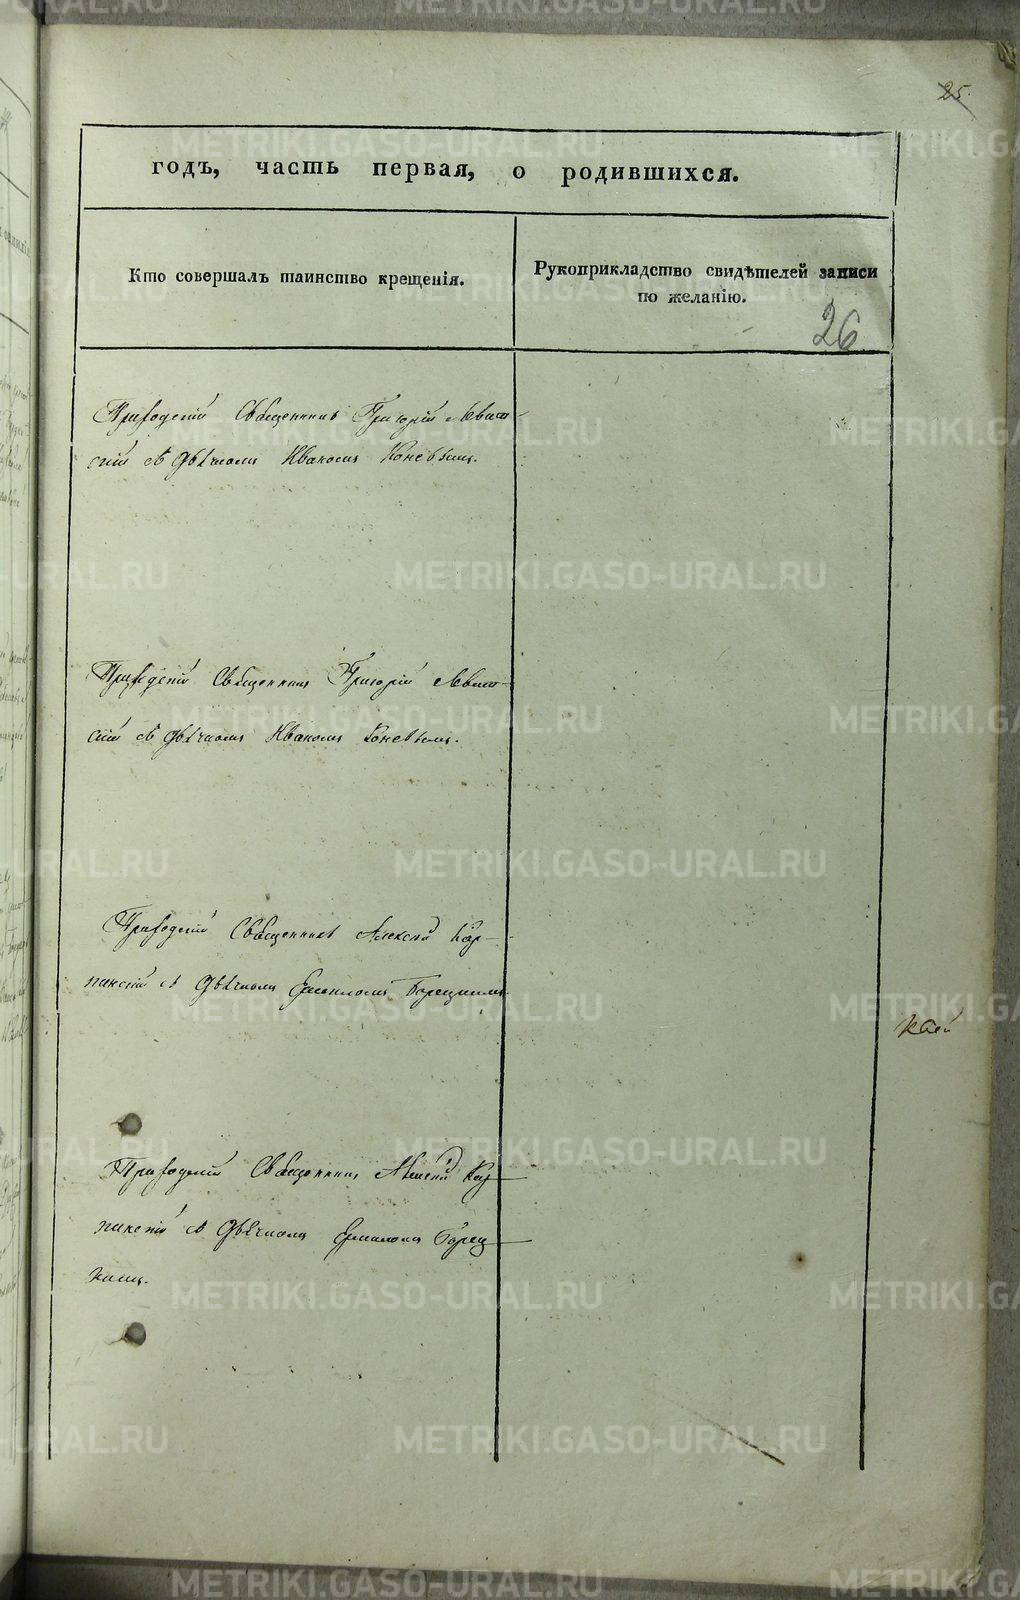 25.
годъ, часть первая, о родившихся.
Кто совершалъ таинство крещенія.
Рукоприкладство свидѣтелей записи
по желанію.
26
Приходскій Священникъ Григорій Левит-
скій съ Дьячкомъ Иваномъ Коневымъ.
Приходскій Священникъ Григорій Левит-
скій съ Дьячкомъ Иваномъ Коневымъ.
Приходскій Священникъ Алексій Кар-
пинскій съ Дьячкомъ Ермиломъ Борецкимъ.
Приходскій Священникъ Алексій Кар-
пинскій съ Дьячкомъ Ермиломъ Борец-
кимъ.
METRIKI.GASO-URAL.RU